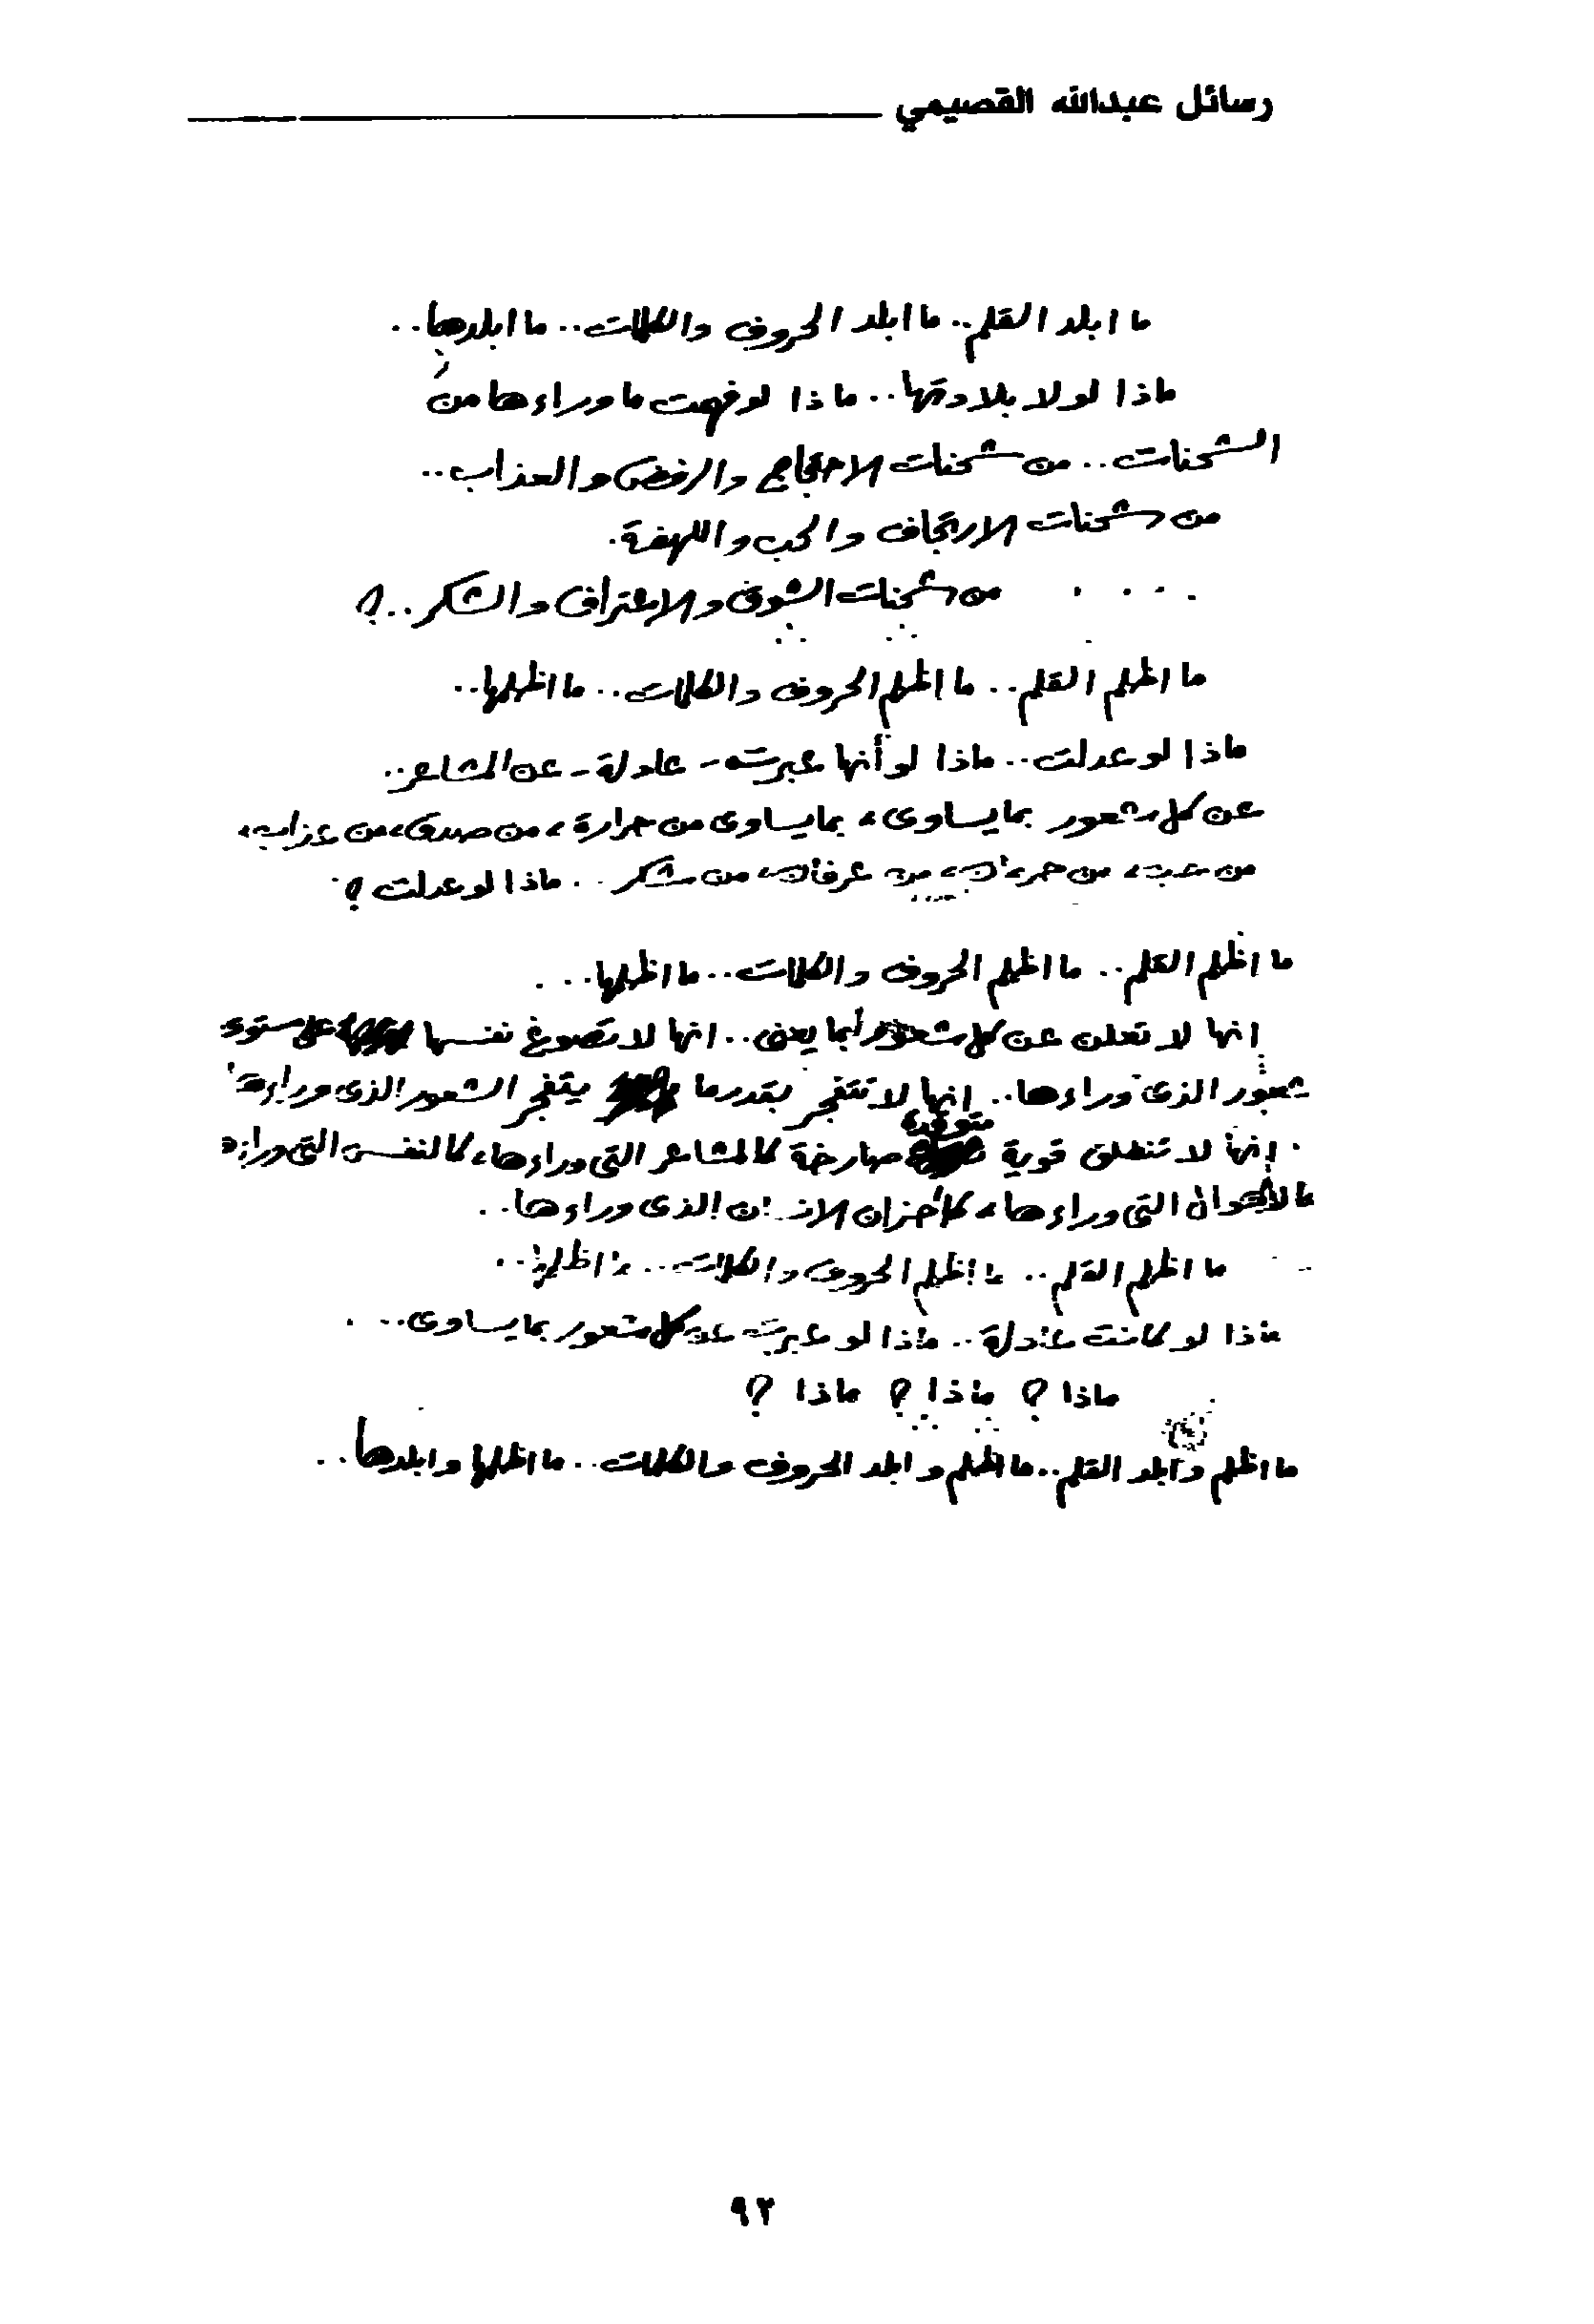 رسائل عبدالله القصيمي
ما ابلد القلم.. ما ابلد الحروف والكلمات.. ما ابلدها..
ماذا لولا بلادتها.. ماذا لو فهمت ما وراءها من
الشحنات.. من شحنات الاحتجاج والرفض والعذاب..
من شحنات الارتجاف والحب واللهفة.
.... من شحنات الشوق والاعتراف والشكر..؟
ما اظلم القلم.. ما اظلم الحروف والكلمات.. ما اظلمها..
ماذا لو عدلت.. ماذا لو أنها عبرت - عادلة - عن المشاعر..
عن كل شعور بما يساوى، بما يساوى من حرارة، من صدق، من عذاب،
من حب، من عرفان، من شكر.. ماذا لو عدلت؟
ما اظلم القلم.. ما اظلم الحروف والكلمات.. ما اظلمها...
إنها لا تعلن عن كل شعور بما يعنى.. انها لا تصوغ نفسها على مستوى
شعور الذى وراءها.. إنها لا تتفجر بقدر ما يتفجر الشعور الذى وراءها
إنها لا تنطلق قوية متوقدة صارخة كالمشاعر التى وراءها، كالنفس التى وراءه
التى وراءها، كأحزان الانسان الذى وراءها..
ما اظلم القلم.. ما اظلم الحروف والكلمات.. ما اظلمها..
ماذا لو كانت عادلة.. ماذا لو عبرت عن كل شعور بما يساوى...
ماذا؟ ماذا؟ ماذا؟
ما اظلم وابلد القلم.. ما اظلم وابلد الحروف والكلمات.. ما اظلمها وابلدها..
٩٢